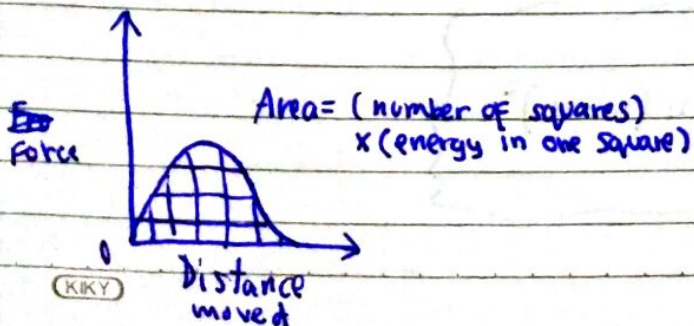 Area= (number of squares)
x (energy in one square)
Force
0
Distance
moved
KIKY